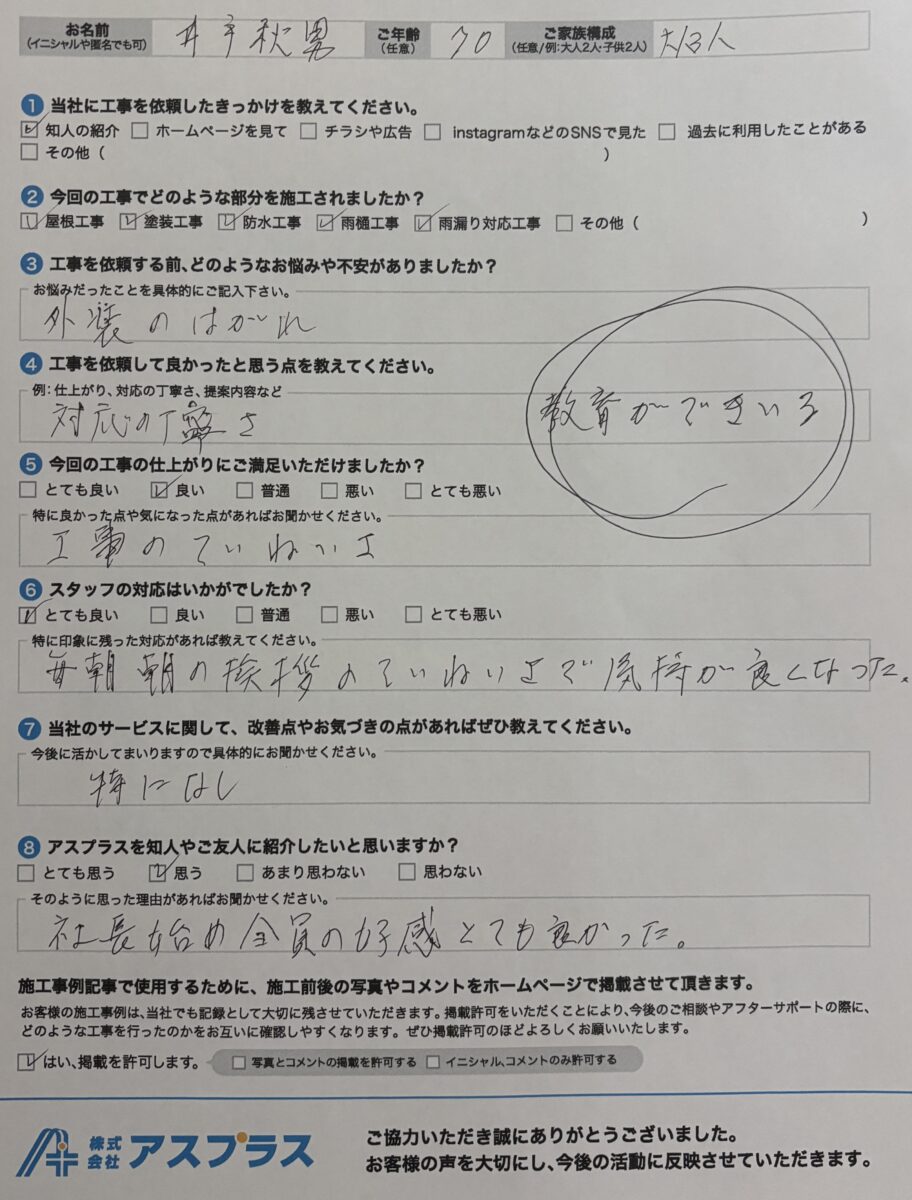 お名前 井戸秋男 ご年齢 70 ご家族構成 大人3人
(イニシャルや匿名でも可) (任意) (任意/例:大人2人・子供2人)
1 当社に工事を依頼したきっかけを教えてください。
☑ 知人の紹介 □ ホームページを見て □ チラシや広告 □ instagramなどのSNSで見た □ 過去に利用したことがある
□ その他 ( )
2 今回の工事でどのような部分を施工されましたか?
☑ 屋根工事 ☑ 塗装工事 ☑ 防水工事 ☑ 雨樋工事 ☑ 雨漏り対応工事 □ その他 ( )
3 工事を依頼する前、どのようなお悩みや不安がありましたか?
お悩みだったことを具体的にご記入下さい。
外装のはがれ
4 工事を依頼して良かったと思う点を教えてください。
例:仕上がり、対応の丁寧さ、提案内容など
対応の丁寧さ 教育ができいろ
5 今回の工事の仕上がりにご満足いただけましたか?
□ とても良い ☑ 良い □ 普通 □ 悪い □ とても悪い
特に良かった点や気になった点があればお聞かせください。
工事のていねいさ
6 スタッフの対応はいかがでしたか?
☑ とても良い □ 良い □ 普通 □ 悪い □ とても悪い
特に印象に残った対応があれば教えてください。
毎朝朝の挨拶のていねいさで気持が良くなった。
7 当社のサービスに関して、改善点やお気づきの点があればぜひ教えてください。
今後に活かしてまいりますので具体的にお聞かせください。
特になし
8 アスプラスを知人やご友人に紹介したいと思いますか?
□ とても思う ☑ 思う □ あまり思わない □ 思わない
そのように思った理由があればお聞かせください。
社長始め全員の好感とても良かった。
施工事例記事で使用するために、施工前後の写真やコメントをホームページで掲載させて頂きます。
お客様の施工事例は、当社でも記録として大切に残させていただきます。掲載許可をいただくことにより、今後のご相談やアフターサポートの際に、
どのような工事を行ったのかをお互いに確認しやすくなります。ぜひ掲載許可のほどよろしくお願いいたします。
☑ はい、掲載を許可します。 □ 写真とコメントの掲載を許可する □ イニシャル、コメントのみ許可する
株式会社 アスプラス
ご協力いただき誠にありがとうございました。
お客様の声を大切にし、今後の活動に反映させていただきます。